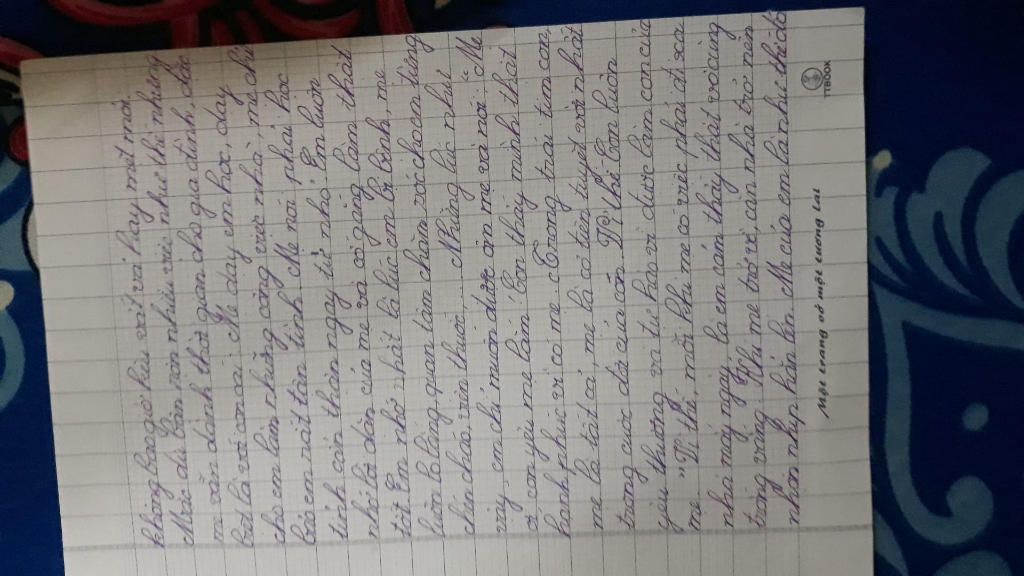 không bao giờ kêu vất vả hay mệt mỏi.
Mặc dù bận rộn nhiều việc như thế nhưng
mẹ vẫn dành thời gian cho gia đình, đặc
biệt là với con cái. Mẹ dạy em học, dạy
cho em làm những công việc nhà, mẹ chỉ
bảo em rất tận tình. Mẹ nói phải học
tính cẩn thận ngay từ nhỏ. Em luôn
nhớ lời dặn của mẹ và cố gắng làm thật
tốt. Em nhớ nhất là lúc em bị bệnh, mẹ
luôn lo lắng quan tâm chăm sóc cho em từng
chén cháo, viên thuốc,... Những lúc như
vậy, em chỉ muốn được ôm mẹ và nói: "Mẹ
ơi con yêu mẹ lắm! Con thấy mình thật
hạnh phúc vì có mẹ. Trong trái tim con,
mẹ là tất cả, mẹ là cô tiên tuyệt vời nhất
trong cuộc đời của con. Vì thế em luôn
yêu thương và tự hào vì được làm con của
mẹ." Vì thế, mỗi khi mẹ có việc phải đi xa
nhà mấy ngày là em cảm thấy thật vô cùng
trống vắng. Khi mẹ trở về, căn nhà trở nên
nhộn nhịp hẳn lên. Mẹ của em là như thế đó
TTBOOK